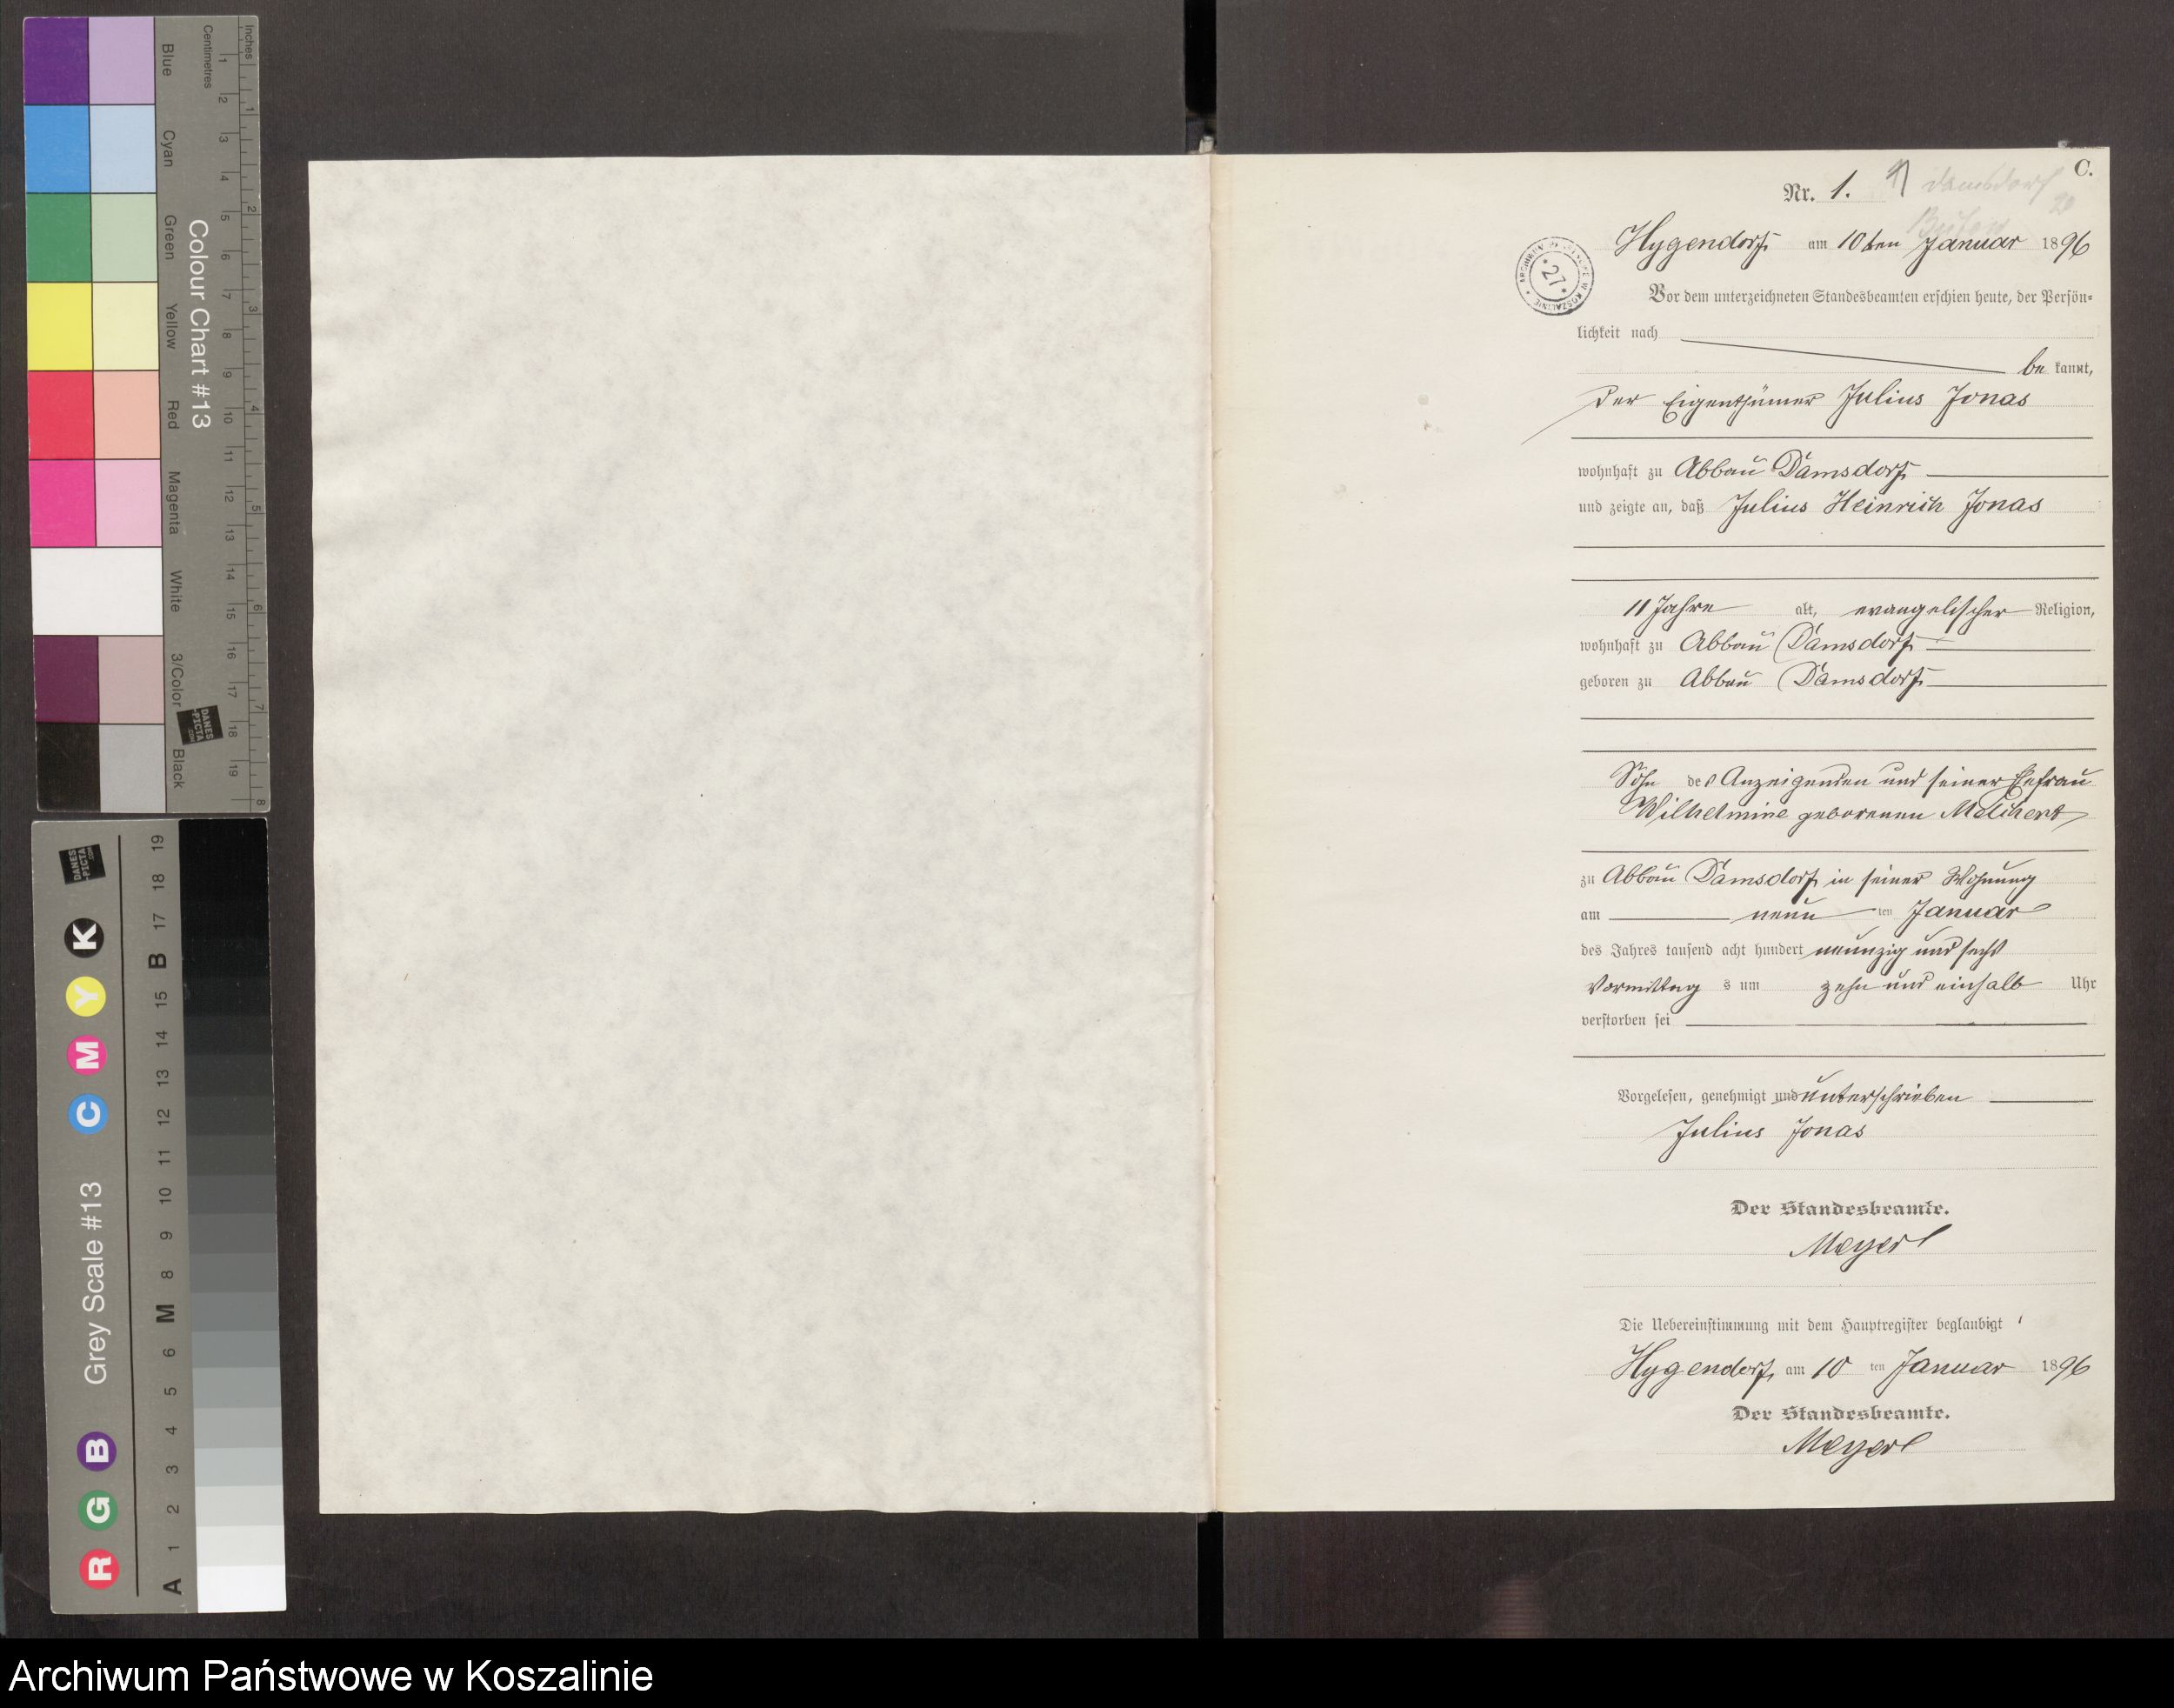 Inches
Centimetres
Blue
Cyan
Green
Yellow
Red
Magenta
White
3/Color
Black
Colour Chart #13
1 2 3 4 5 6 7 8 9 10 11 12 13 14 15 16 17 18 19
1 2 3 4 5 6 7 8
DANES
-PICTA
.COM
DANES
-PICTA
.COM
R G B Grey Scale #13 C M Y K
A 1 2 3 4 5 6 M 8 9 10 11 12 13 14 15 B 17 18 19
C.
Nr. 1.
Damsdorf
Hygendorf am 10ten Januar 1896
27
Vor dem unterzeichneten Standesbeamten erschien heute, der Persön-
lichkeit nach
be kannt,
der Eigenthümer Julius Jonas
wohnhaft zu Abbau Damsdorf
und zeigte an, daß Julius Heinrich Jonas
11 Jahre alt, evangelischer Religion,
wohnhaft zu Abbau Damsdorf
geboren zu Abbau Damsdorf
Sohn des Anzeigenden und seiner Ehefrau
Wilhelmine geborenen Melchert
zu Abbau Damsdorf in seiner Wohnung
am neun ten Januar
des Jahres tausend acht hundert neunzig und sechs
Vormittag s um zehn und einhalb Uhr
verstorben sei
Vorgelesen, genehmigt und unterschrieben
Julius Jonas
Der Standesbeamte.
Meyer
Die Uebereinstimmung mit dem Hauptregister beglaubigt
Hygendorf, am 10 ten Januar 1896
Der Standesbeamte.
Meyer
Archiwum Państwowe w Koszalinie